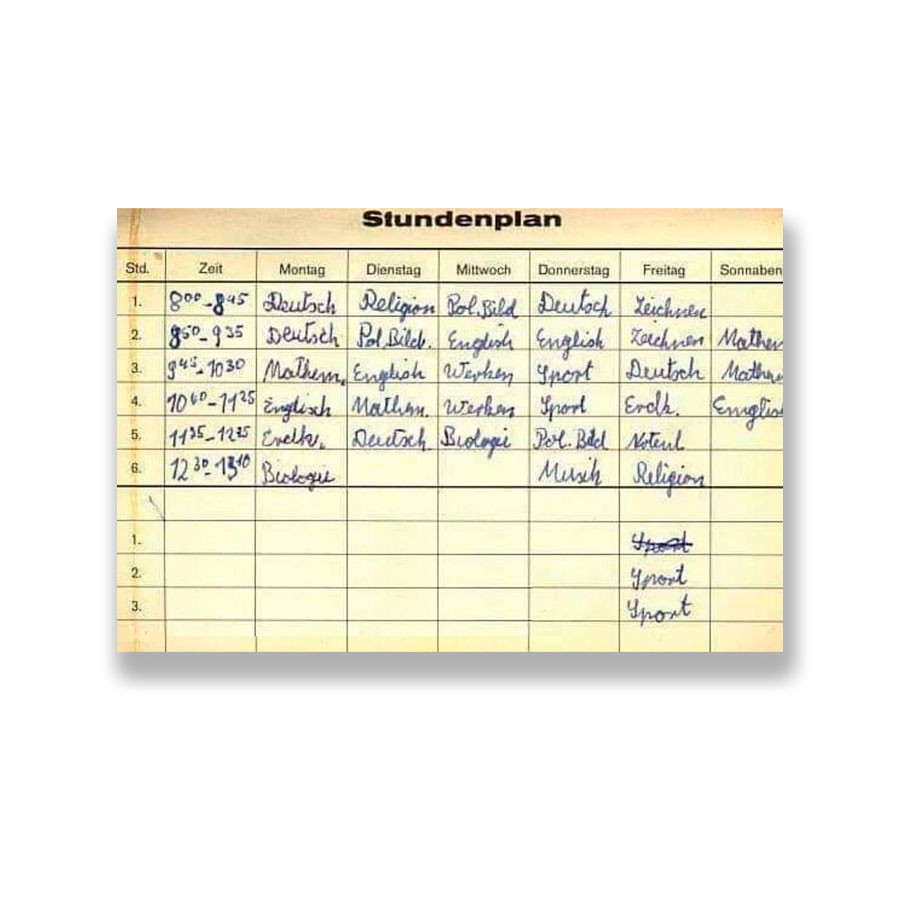 Stundenplan
Std. Zeit Montag Dienstag Mittwoch Donnerstag Freitag Sonnaben
1. 8⁰⁰-8⁴⁵ Deutsch Religion Pol. Bild Deutsch Zeichnen
2. 8⁵⁰-9³⁵ Deutsch Pol. Bild. English English Zeichnen Mathem
3. 9⁴⁵-10³⁰ Mathem. English Werken Sport Deutsch Mathem
4. 10⁴⁰-11²⁵ Englisch Mathem. Werken Sport Erdk. Englis
5. 11³⁵-12²⁵ Erdk. Deutsch Biologie Pol. Bild
6. 12³⁰-13¹⁰ Biologie Musik Religion
1. Sport
2. Sport
3. Sport